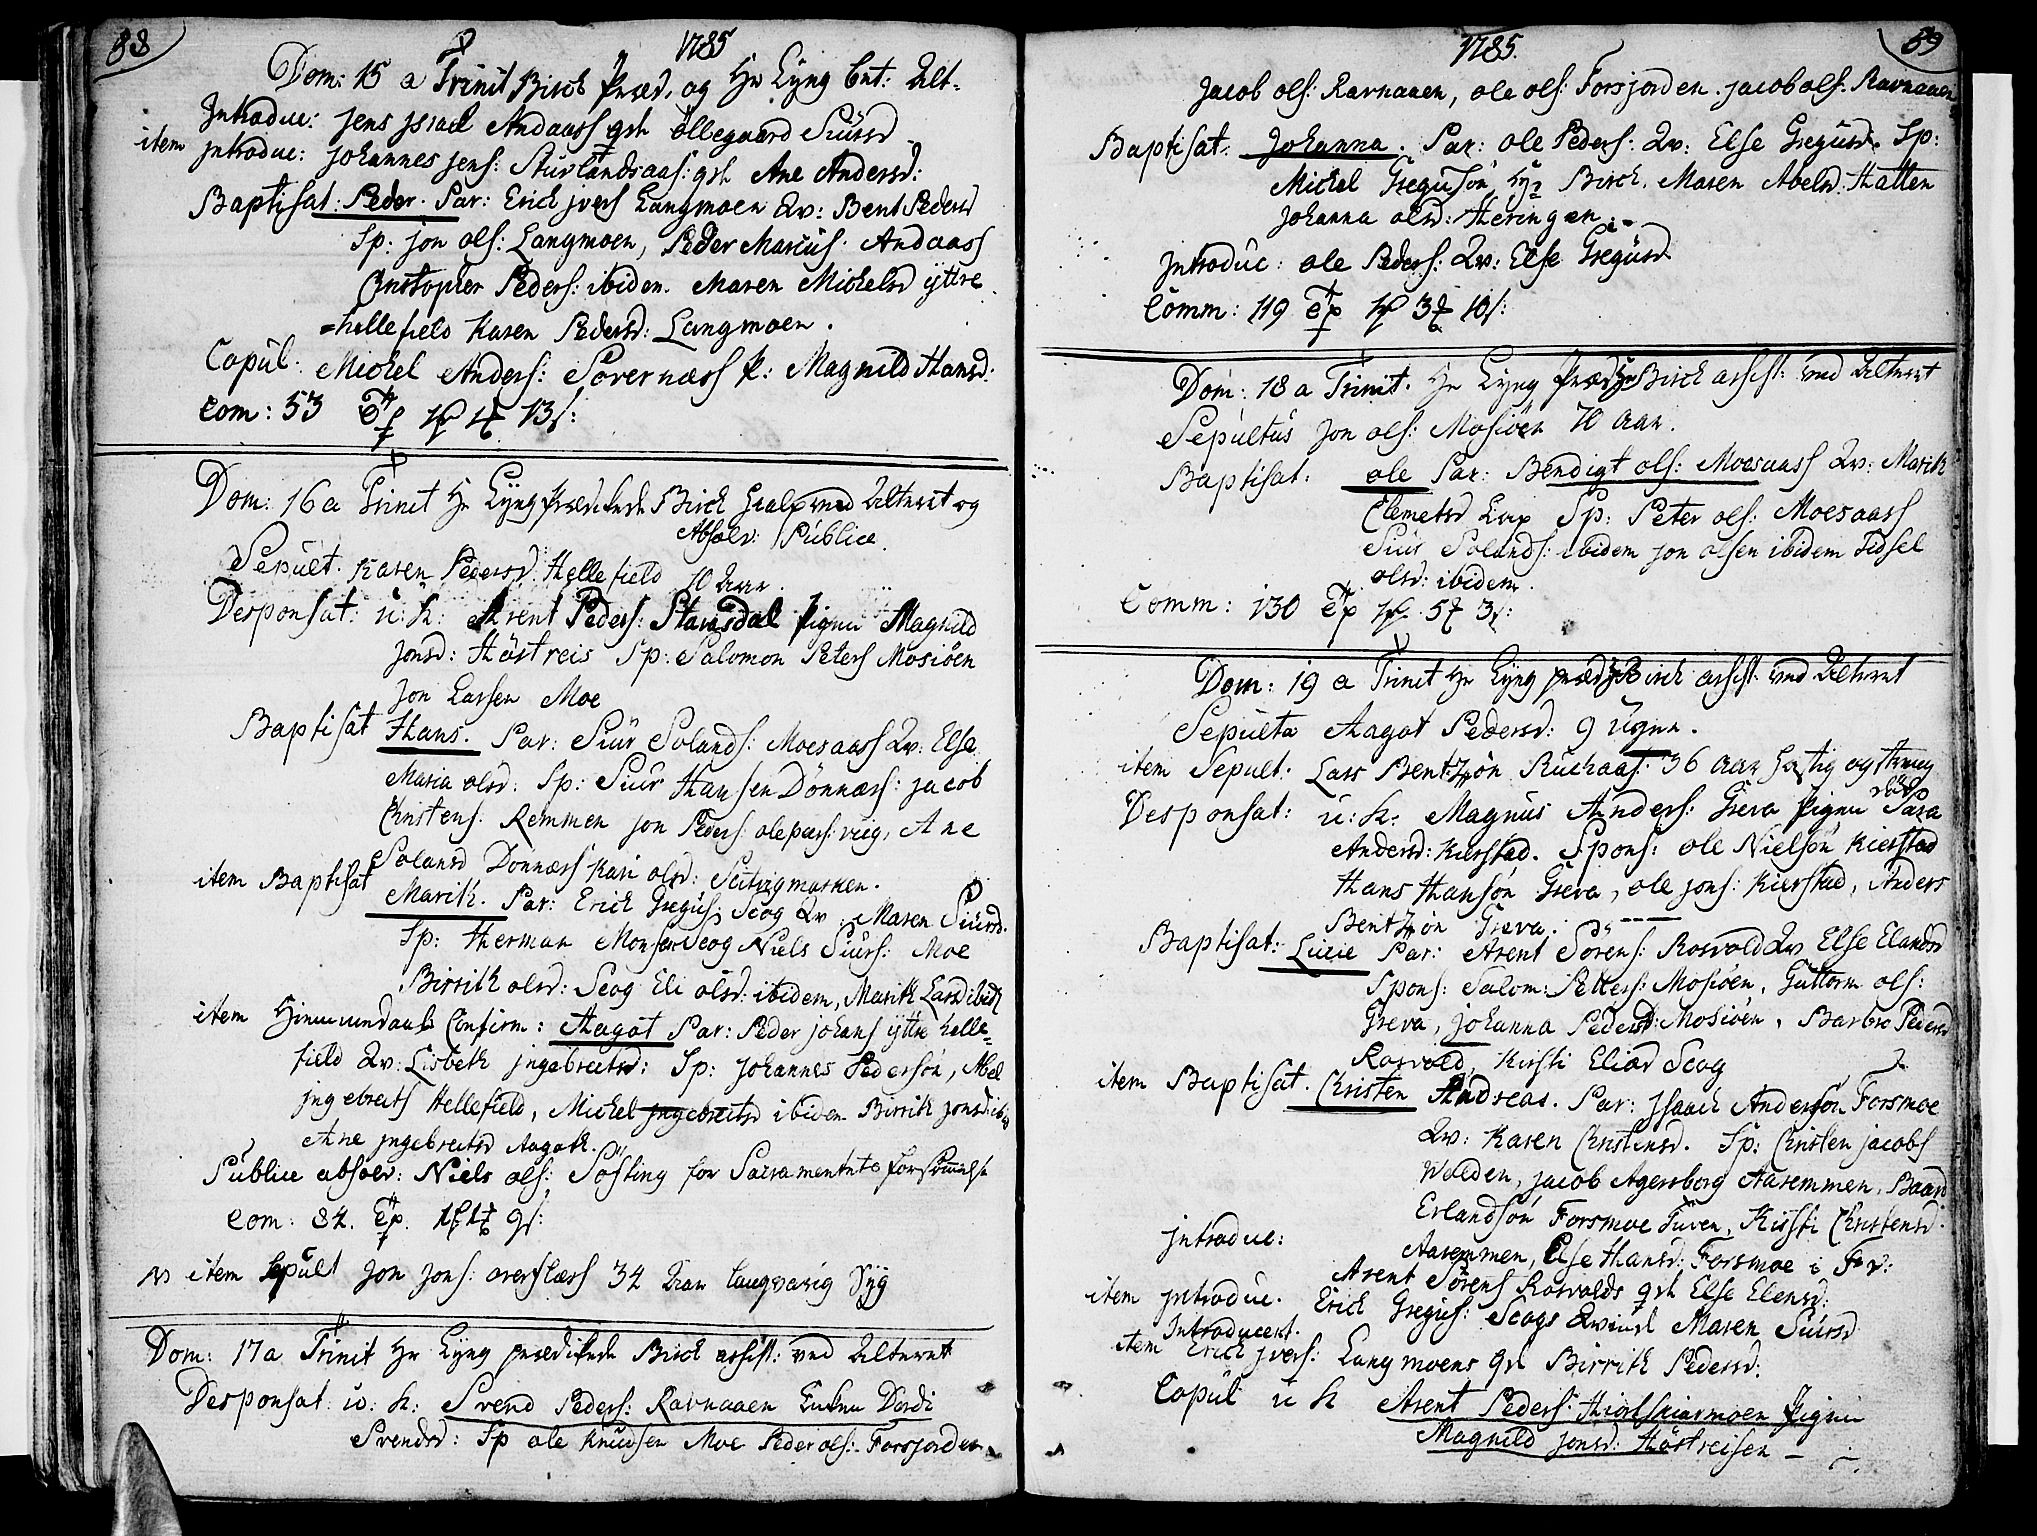 88
1785
Dom: 15 a Trinit Birch Præd. og Hr Lyng bet: Alt-
Introduc: Jens Jsrael Andaass qvh Ollegaard Siürsd
item Introduc: Johannes Jens: Stürlandsaas: qvh Ane Andersd:
Baptisat: Peder. Par: Erich Jvers Langmoen Qv: Bent Pedersd
Sp: Jon Ols: Langmoen, Peder Marcüs: Andaass
Christopher Peders: ibidem. Maren Mickelsd ÿttre
=hellefield Karen Pedersd: Langmoen.
Copül: Mickel Anders: Sövernæss p: Magnild Hansd:
Com: 53 13 s:
Dom: 16 a Trinit Hr Lyng prædikede Birch hialp ved Alteret og
Absolv: Publice.
Sepult. Karen Pedersd: Hellefield 70 Aar.
Desponsat: u: k: Arent Peders: Stavsdal Pigen Magnild
Jonsd: Höstreis Sp: Salomon Peters Mosiöen
Jon Larsen Moe
Baptisat Hans. Par: Siür Solands: Moesaass Qv: Else
Maria Olsd: Sp: Siür Hansen Dönnæss: Jacob
Christens: Remmen Jon Peders: Ole Peers: vieg, Ane
Solansd Dönnæss Kari Olsd:
item Baptisat Marith. Par: Erich Gregüs: Scog Qv: Maren Siürsd.
Sp: Herman Monsen Scog Niels Siürs: Moe
Birrith Olsd: Scog Eli Olsd: ibidem, Marith Larsd ibid:
item Hiemmedaab Confirm: Aagot Par: Peder Johans ÿttre helle=
field Qv: Lisbeth Jngebreitsd: Sp: Johannes Pedersön, Abel
Jngebreits Hellefield, Mickel Jngebreitsd ibidem Birrith Jonsd ibid
Ane Jngebreitsd Aagoth.
Publice absolv: Niels Ols: Söfting for Sacramentets forsömmelse
Com: 84. 9 s:
item Sepült Jon Jons: 34 Aar langvarig Syg
Dom: 17 a Trinit Hr Lyng prædikede Birch assist: ved Alteret
Desponsat: u: k: Svend Peders: Ravnaaen Enken Dordi
Svendsd: Sp Ole Knudsen Moe Peder Ols: Forsjorden
89
1785.
Jacob Ols: Ravnaaen, Ole Ols: Forsjorden. Jacob Ols: Ravnaaen
Baptisat. Johanna. Par: Ole Peders: Qv: Else Gregüsd. Sp:
Mickel Gregüsön Hr Birch. Maren Abelsd: Hatten
Johanna Olsd: Heringen.
Introduc: Ole Peders: Qv: Else Gregüsd
Comm: 119 10 s:
Dom: 18 a Trinit. Hr Lyng Præd: Hr Birch assist: ved Alteret
Sepültüs Jon Ols: Mosiöen 70 Aar.
Baptisat: Ole Par: Bendigt Ols: Moesaass Qv: Marith
Clemetsd Sp: Peter Ols: Moesaass
Siür Solands: ibidem Jon Olsen ibidem Sidsel
Olsd: ibidem.
Comm: 130 3 s:
Dom: 19 a Trinit Hr Lyng præd: Hr Birch assist. ved Alteret
Sepülta Aagot Pedersd: 9 Uger.
item Sepult: Lars Bentzön Rüchaas: 36 Aar
Desponsat: u: k: Magnüs Anders: Greva Pigen Sara
Andersd: Kierstad. Spons: Ole Nielsön Kierstad
Hans Hansön Greva, Ole Jons: Kierstad, Anders
Bentzön Greva.
Baptisat: Lücie Par: Arent Sörens: Rosvold Qv Else Elandsd
Spons: Salom: Petters: Mosiöen, Güttorm Ols:
Greva, Johanna Pedersd: Mosiöen, Barbro Pedersd
Rosvold, Kirsti Eliæd Scog
item Baptisat. Christen Andreas. Par: Jsaach Andersön Forsmoe
Qv: Karen Christensd. Sp: Christen Jacobs
Wolden, Jacob Agersborg Aaremmen, Baard
Erlandsön Forsmoe Türen, Kirsti Christensd:
Aaremmen, Else Hansd: Forsmoe i
Introduc: Arent Sörens Rosvolds qvh Else Elensd:
item Introduc. Erich Gregüs: Scogs Qvinde Maren Siürsd
Introducert.
item Erich Jvers: Langmoens qvh Birrith Pedersd:
Copül u k Arent Peders: Pigen
Magnild Jonsd: Höstreisen